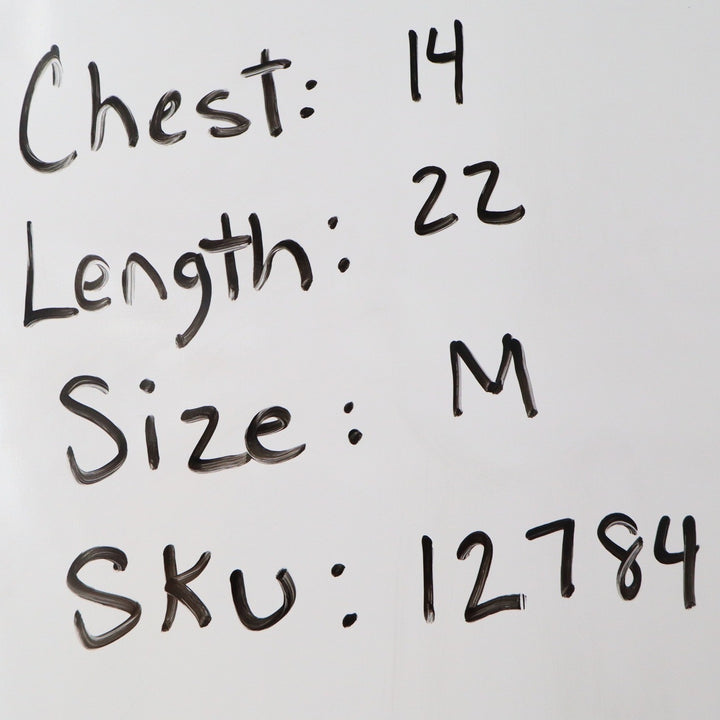 Chest: 14
Length: 22
Size: M
SKU: 12784